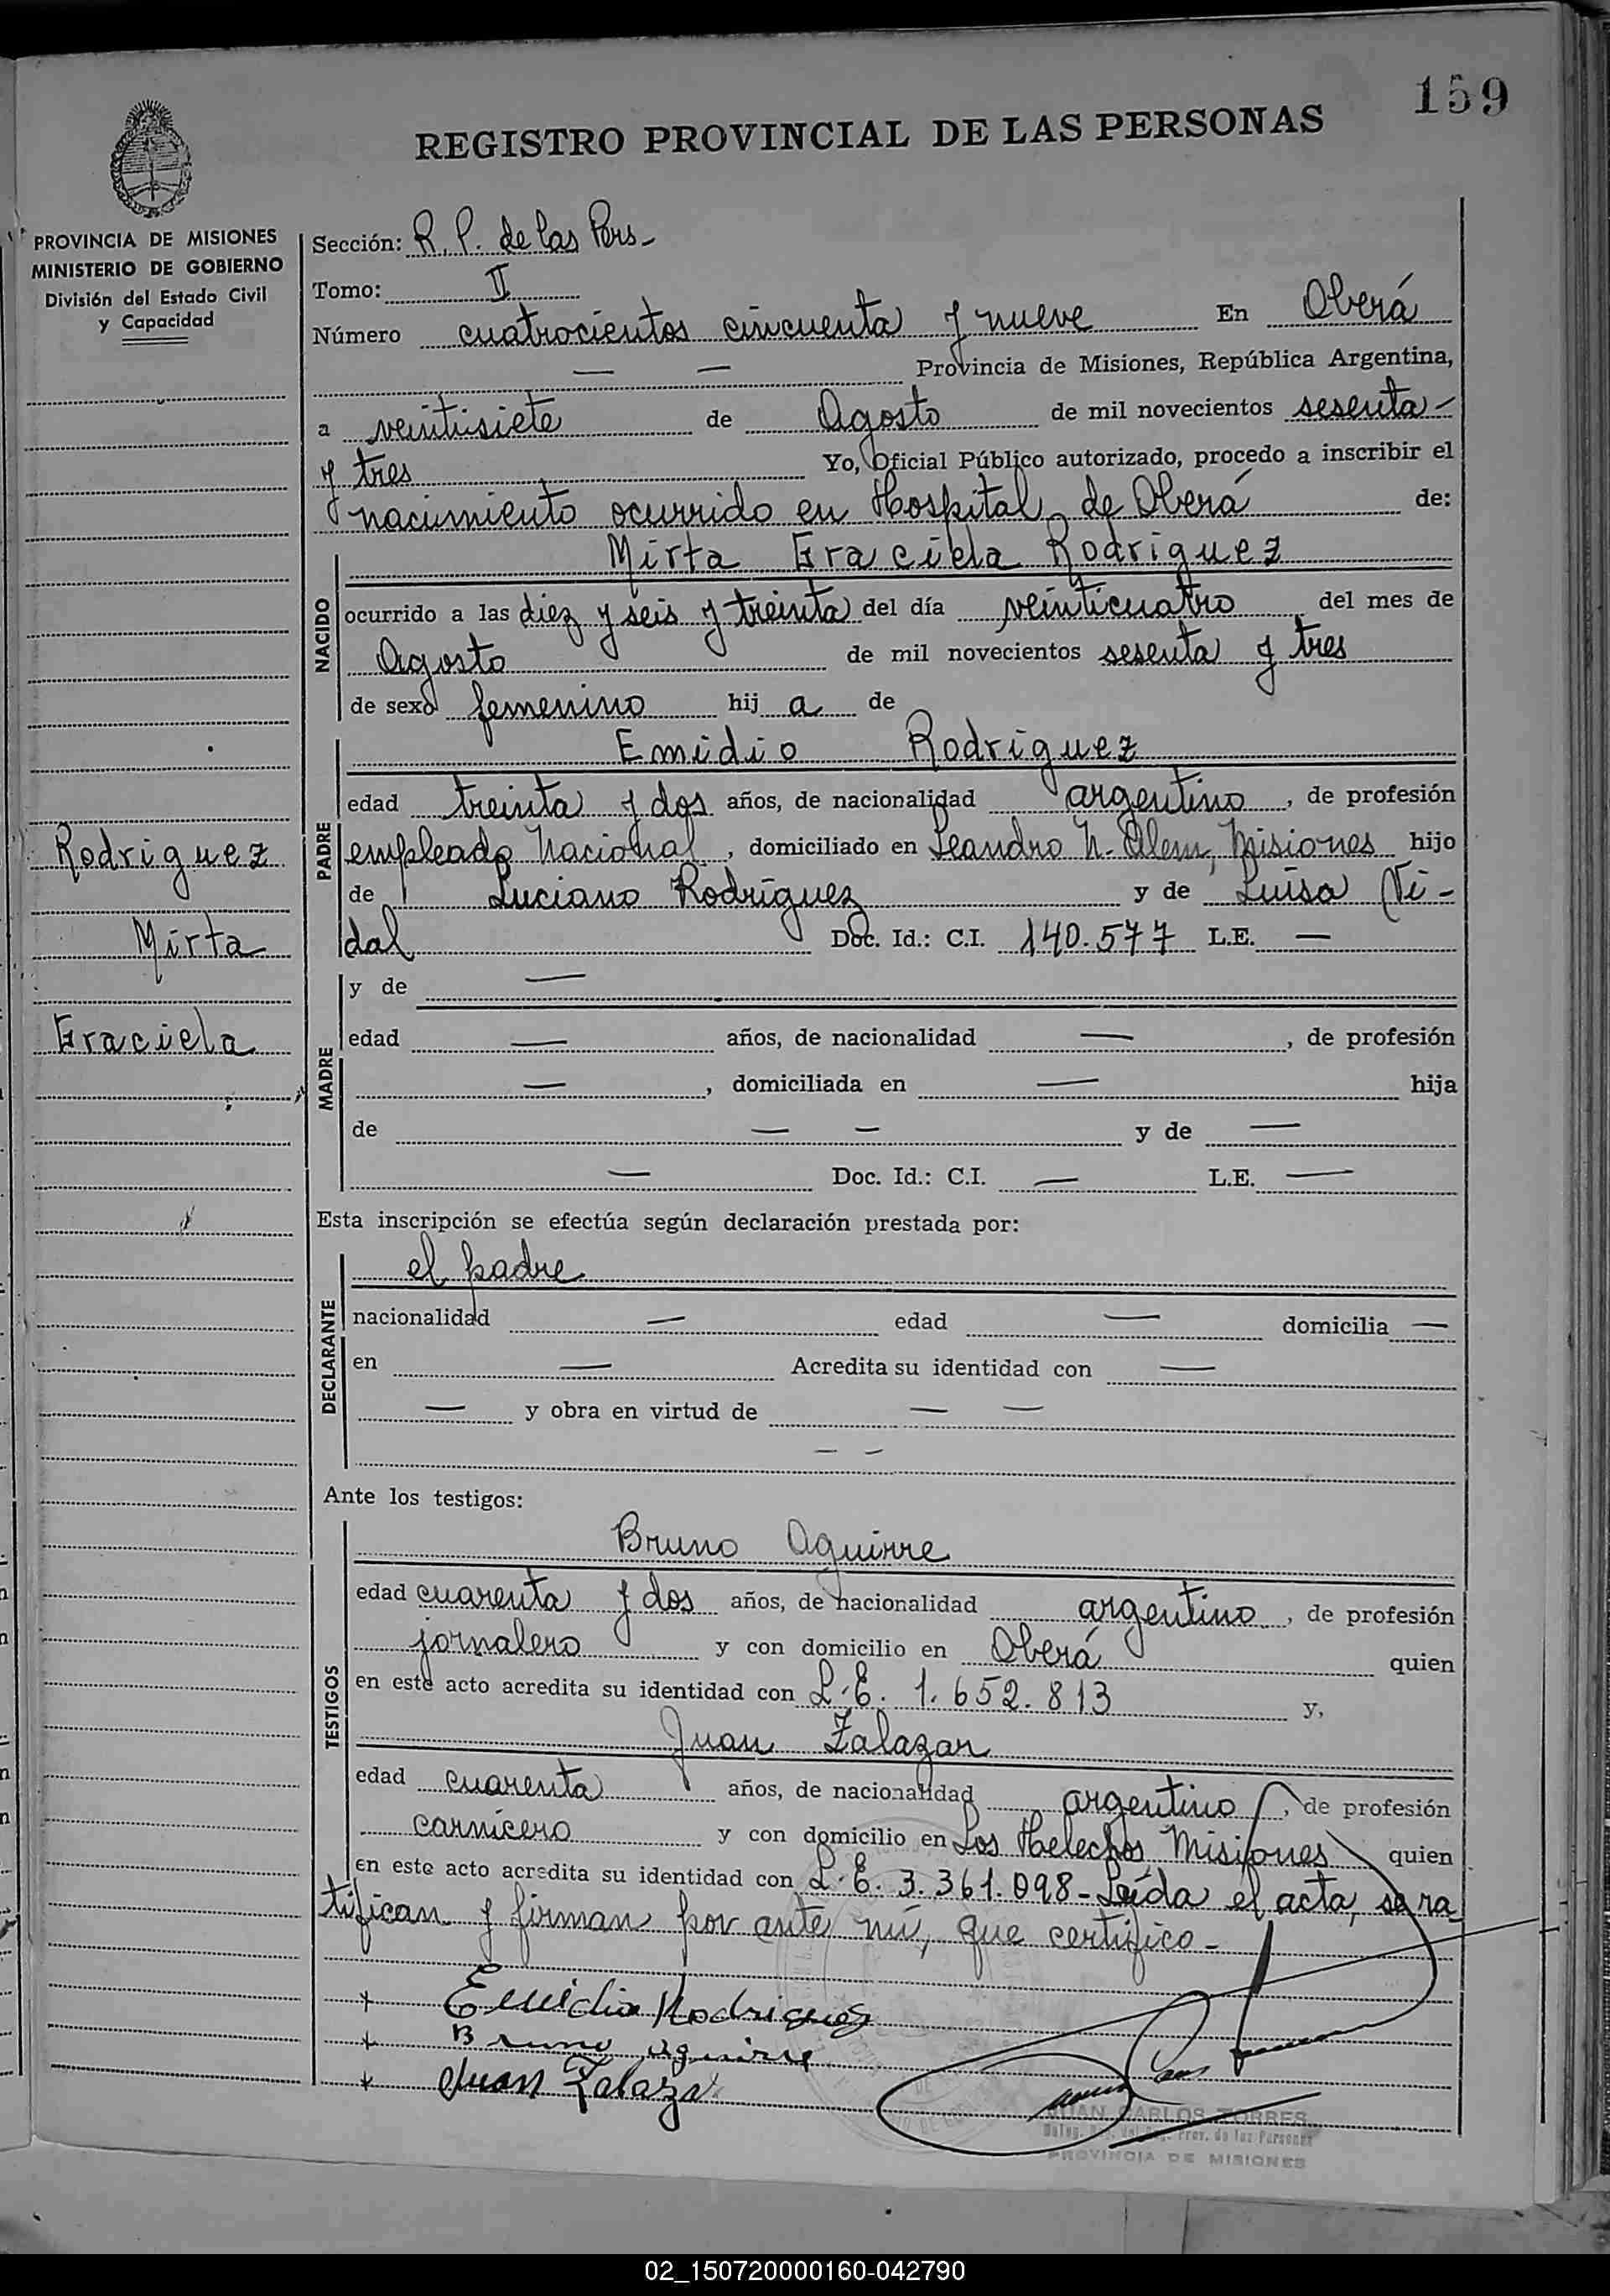 159
REGISTRO PROVINCIAL DE LAS PERSONAS
PROVINCIA DE MISIONES
MINISTERIO DE GOBIERNO
División del Estado Civil
y Capacidad
Sección: R. P. de las Pers-
Tomo: II
Número cuatrocientos cincuenta y nueve En Oberá
— — Provincia de Misiones, República Argentina,
a veintisiete de Agosto de mil novecientos sesenta-
y tres Yo, Oficial Público autorizado, procedo a inscribir el
nacimiento ocurrido en Hospital de Oberá de:
NACIDO
Mirta Graciela Rodriguez
ocurrido a las diez y seis y treinta del día veinticuatro del mes de
Agosto de mil novecientos sesenta y tres
de sexo femenino hij a de
PADRE
Emidio Rodriguez
edad treinta y dos años, de nacionalidad argentino, de profesión
empleado Nacional, domiciliado en Leandro N. Alem, Misiones hijo
de Luciano Rodríguez y de Luisa Vi-
dal Doc. Id.: C.I. 140.577 L.E. —
Rodriguez
Mirta
Graciela
MADRE
y de —
edad — años, de nacionalidad —, de profesión
—, domiciliada en — hija
de — — y de —
— Doc. Id.: C.I. — L.E. —
Esta inscripción se efectúa según declaración prestada por:
DECLARANTE
el padre
nacionalidad — edad — domicilia —
en — Acredita su identidad con —
— y obra en virtud de — —
— —
Ante los testigos:
TESTIGOS
Bruno Aguirre
edad cuarenta y dos años, de nacionalidad argentino, de profesión
jornalero y con domicilio en Oberá quien
en este acto acredita su identidad con L.E. 1.652.813 y,
Juan Zalazar
edad cuarenta años, de nacionalidad argentino, de profesión
carnicero y con domicilio en Los Helechos Misiones quien
en este acto acredita su identidad con L.E. 3.361.098- Leída el acta, se ra-
tifican y firman por ante mí, que certifico-
Emidio Rodriguez
Bruno Aguirre
Juan Zalaza
JUAN CARLOS TORRES
Prov. de las Personas
PROVINCIA DE MISIONES
02_150720000160-042790